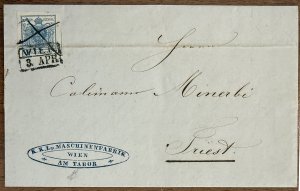 WIEN
3. APR.
Herrn
Calimano Menerbi
Triest
K.K.Lp. MASCHINENFABRIK
WIEN
AM TABOR